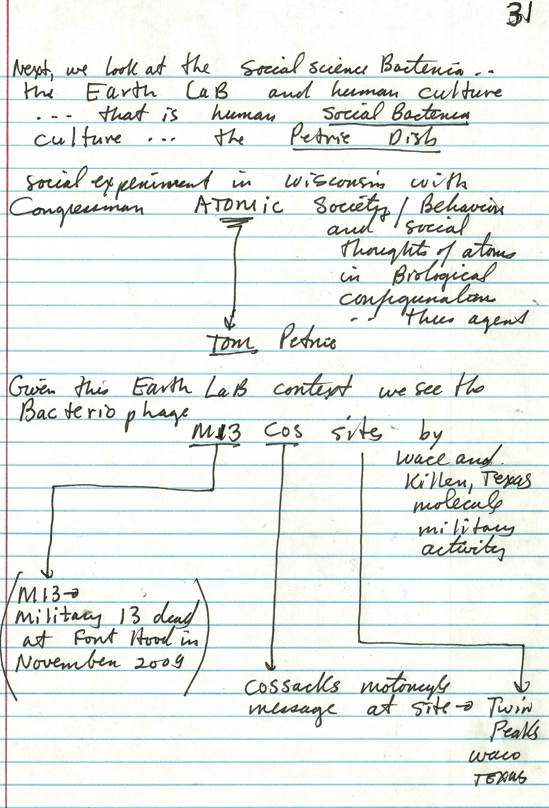 31
Next, we look at the social science Bacteria..
the Earth LaB and human culture
... that is human Social Bacteria
culture ... the Petrie Dish
social experiment in Wisconsin with
Congressman ATOMIC Society / Behavior
and social
thoughts of atoms
in Biological
configuration
.. thus agent
Tom Petrie
Given this Earth LaB context we see the
Bacteriophage
M13 Cos sites by
Waco and
Killen, Texas
molecule
military
activity
(M13→
Military 13 dead
at Font Hood in
November 2009)
Cossacks motorcycle
message at site → Twin
Peaks
Waco
TEXAS